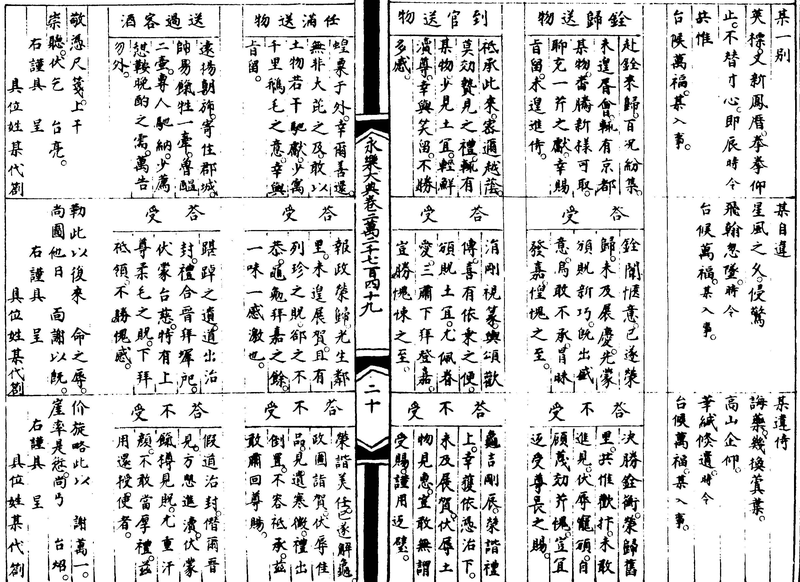 某一別
英標丈新鳳曆。拳拳仰
止。不替寸心。即辰時令
共惟
台候萬福。某入事。
銓歸送物
赴銓來歸。百況紛集。
未遑胥會。輒有京都
某物。番騰新樣可取。
聊充一芹之獻。幸賜
旨留。未遑進侍。
到官送物
祗承此來。密邇越蔭。
莫効贄見之禮。輒有
某物少見土宜。輕鮮
瀆尊。幸與笑留。不勝
多感。
永樂大典卷二萬二千七百四十九
二十
任滿送物
于外。幸爾善還
無非大芘之及。敢以
土物若干馳獻。少寓
千里鵝毛之意。幸與
旨留。
送過客酒
遠揚朝旆。寄住郡城。
易餼牲一牽。膋醖
二壺。專人馳納。少篤
鞍晚酌之需。萬告
勿外。
敬憑尺箋。上干
崇聽。伏乞 台亮。
右謹具 呈
具位姓某代劄
某自違
星風之久。侵驚
飛翰忽墜。時令
台候萬福。某入事。
答受
銓闈愜意。已遂榮
歸。未及展慶。先蒙
頒貺新巧。既出盛
意。烏敢不承。冒昧
發嘉。惶愧之至。
答受
涓剛視篆。輿頌歡
傳。喜有依棠之便。
頒貺土宜。尤佩眷
愛。三肅下拜登嘉。
宜勝愧悚之至。
答受
報政榮歸。光生鄰
里。未遑展賀。且有
列珍之貺。卻之不
恭。龜勉拜嘉之餘。
一味一感激也。
答受
踸踔之蹟。道出治
封。禮合晉拜墀戺。
伏蒙台慈。特有上
尊柔毛之貺。下拜
祗領。不勝愧感。
勒此以復來 命之辱。
尚圖他日 面謝以既。
右謹具 呈
具位姓某代劄
某違侍
誨藥。幾換蓂葉。
高山企仰。
華緘倏遺。時令
台候萬福。某入事。
答不受
決勝銓衡。榮歸舊
里。共惟歡抃。未敢
進見。伏辱寵頒。自
顧蔑効芹愧。豈宜
迺受尊長之賜。
答不受
龜吉剛辰。榮諧禮
上。幸獲依憑治下。
未及展賀。伏辱土
物見惠。豈敢無謂
受賜。謹用迺璧。
答不受
榮諧美任。已遂解龜。
政圖詣賀。伏辱佳
品見遺寒微。禮出
倒置。不容祗承。茲
敢肅回尊賜。
答不受
假道治封。僭爾晉
見。方愁進瀆。伏蒙
餼樽見貺。尤重汗
顏。不敢當厚禮。茲
用還授使者。
价旋。略此以 謝萬一。
崖率是愆。尚丐 台炤。
右謹具 呈
具位姓某代劄